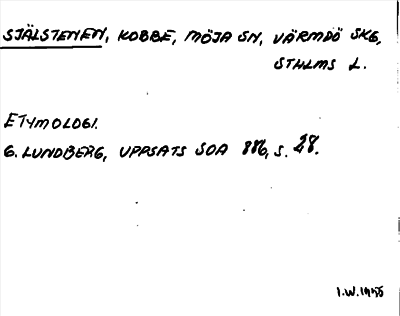 SJÄLSTENEN, KOBBE, MÖJA SN, VÄRMDÖ SKG,
STHLMS L.
ETYMOLOGI.
G. LUNDBERG, UPPSATS SOA 886, S. 28.
I.W. 1955